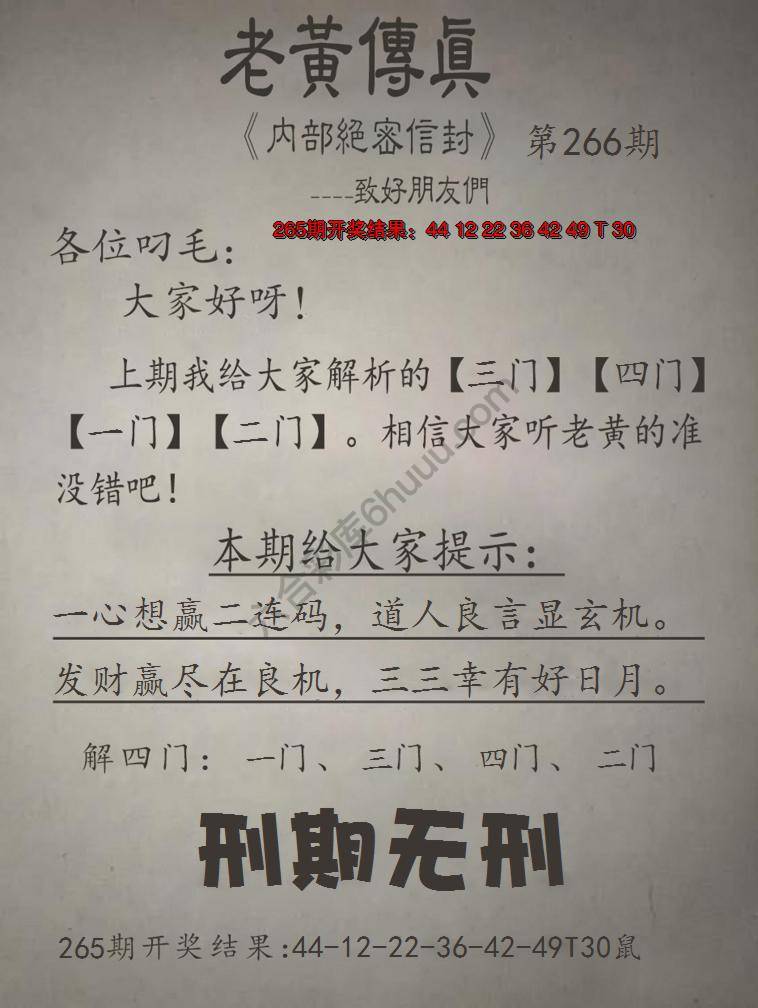 老黃傳眞
《内部絕密信封》 第266期
----致好朋友們
265期开奖结果：44 12 22 36 42 49 T 30
各位叼毛：
大家好呀！
上期我给大家解析的【三门】【四门】
【一门】【二门】。相信大家听老黄的准
没错吧！
六合彩库6huuu.com
本期给大家提示：
一心想赢二连码，道人良言显玄机。
发财赢尽在良机，三三幸有好日月。
解四门： 一门、 三门、 四门、 二门
刑期无刑
265期开奖结果:44-12-22-36-42-49T30鼠